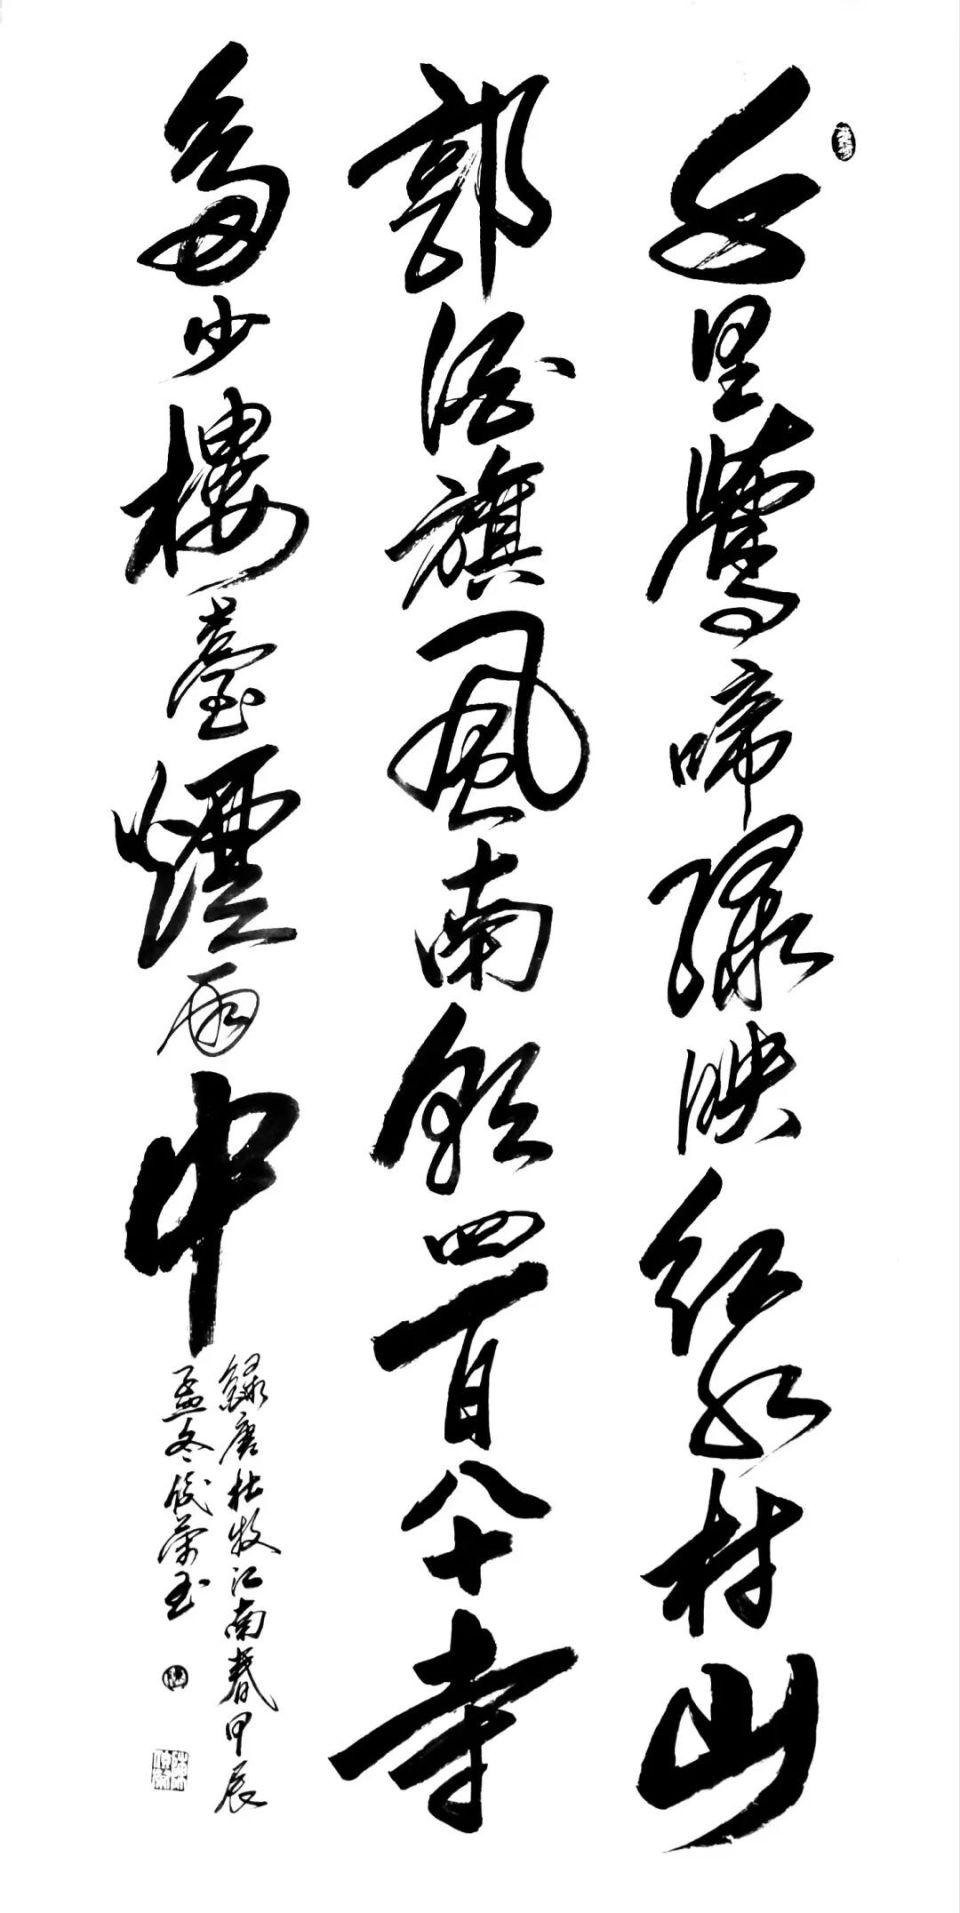 千里鶯啼綠映紅水村山
郭酒旗風南朝四百八十寺
多少樓臺煙雨中
錄唐杜牧江南春甲辰
孟冬